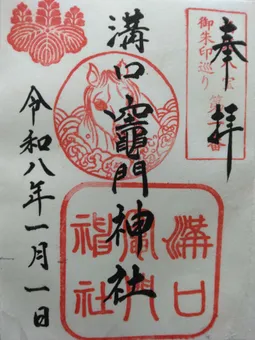 奉拝
御朱印巡り
溝口竈門神社
令和八年一月一日
溝口
竈門
神社